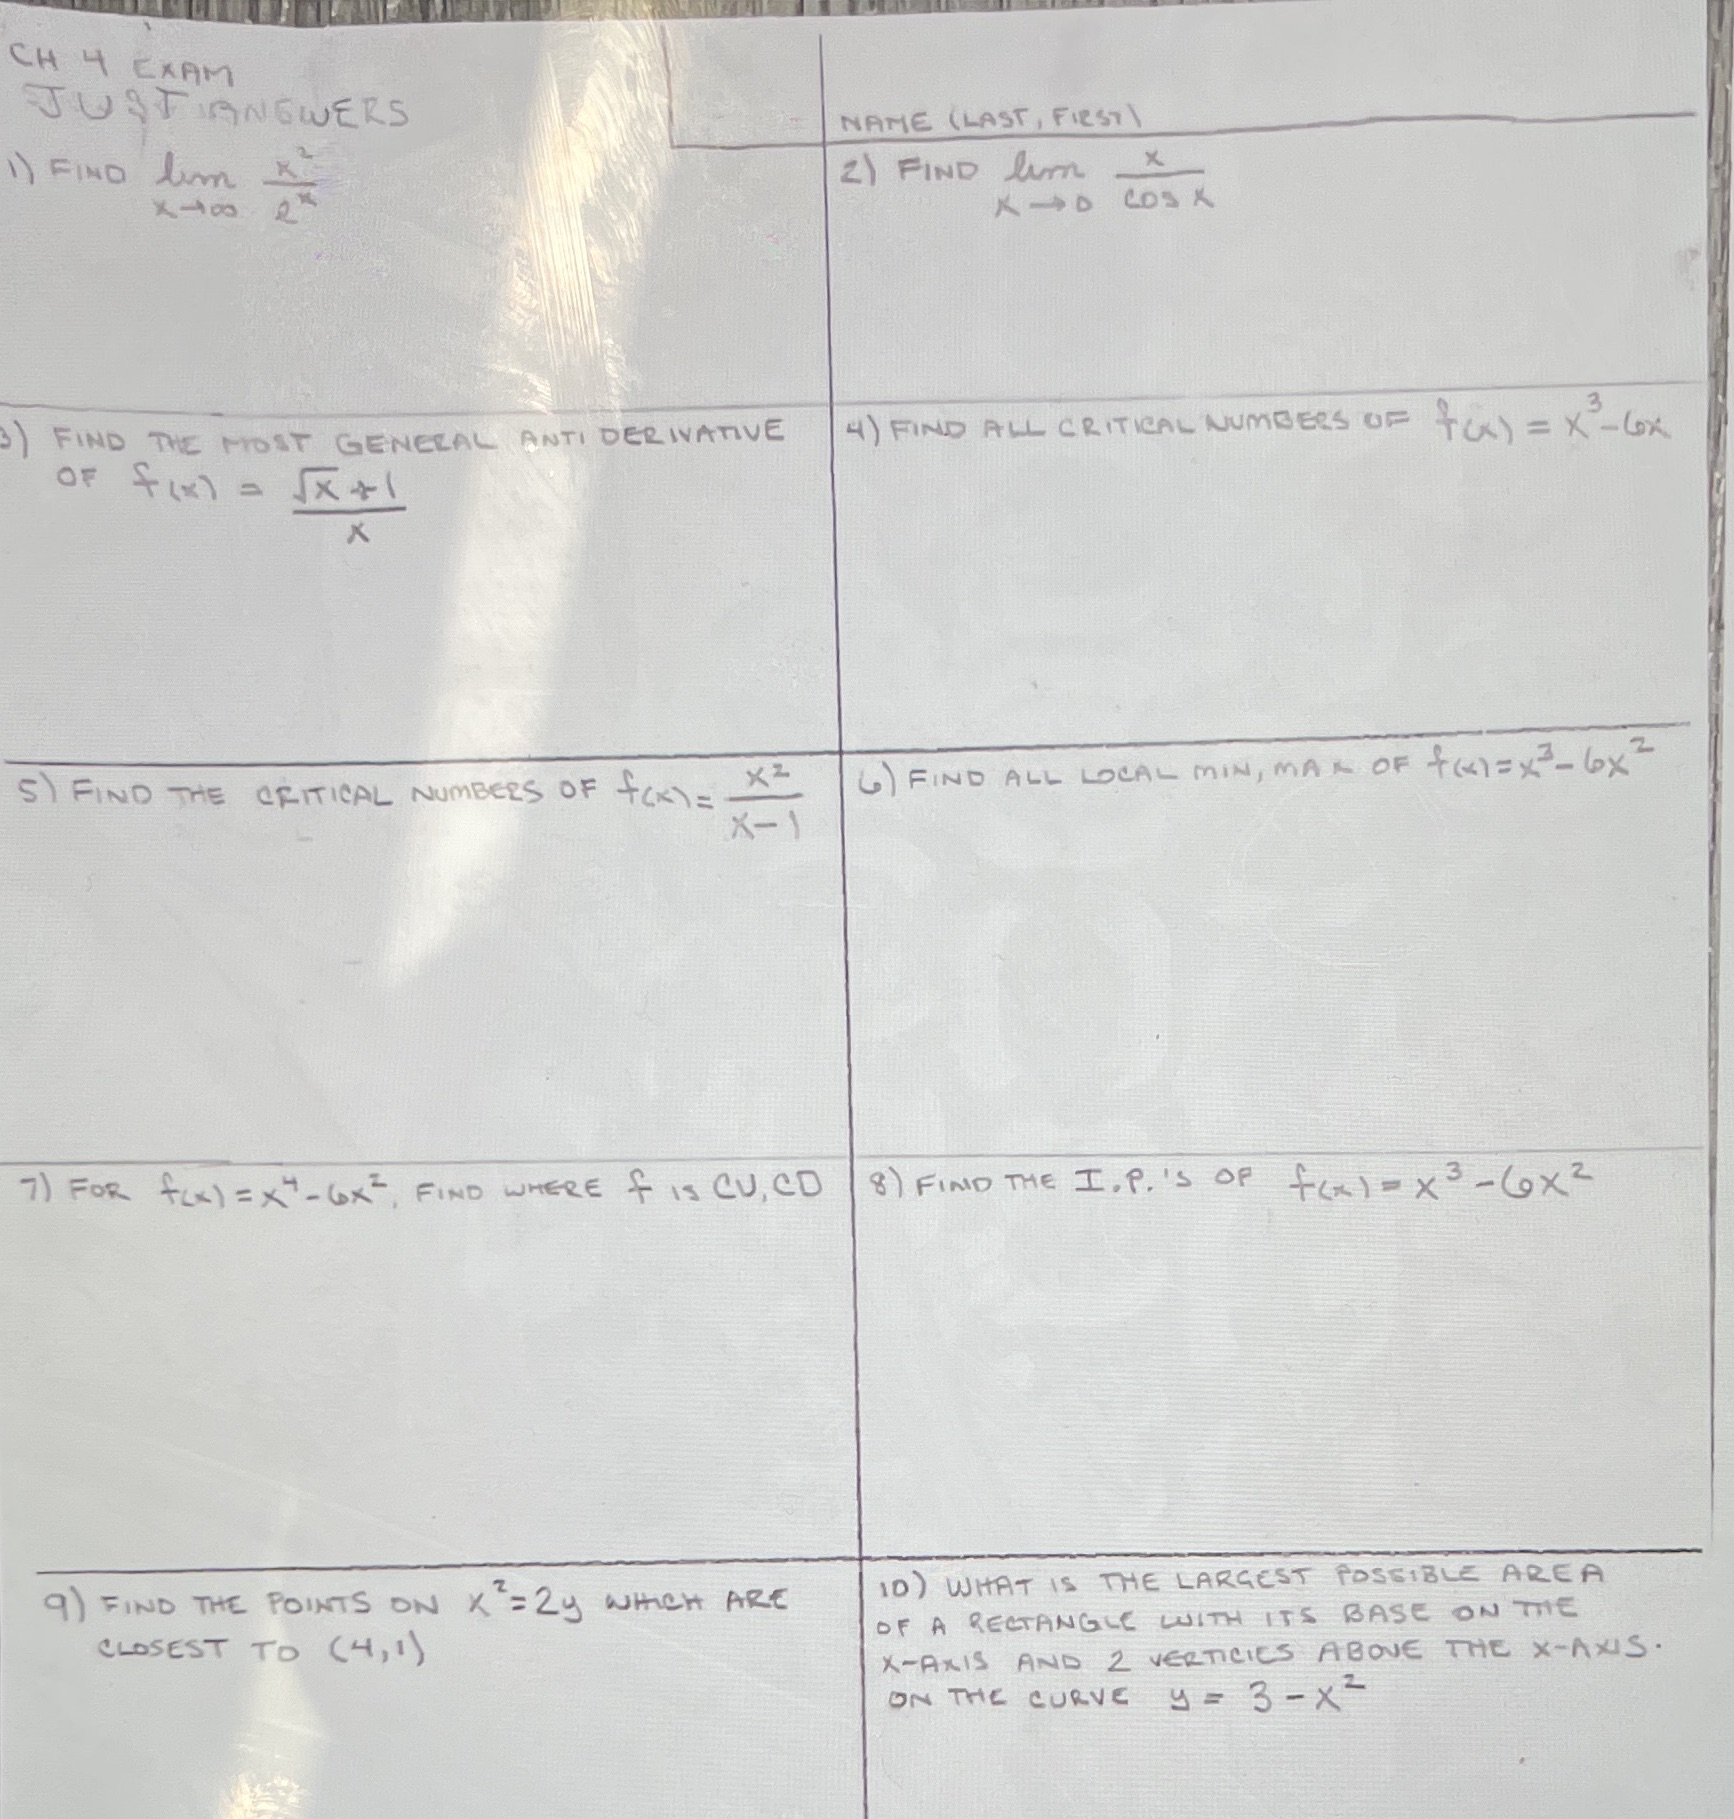 CH 4 EXAM
JUST ANSWERS
NAME (LAST, FIRST)
1) FIND lim x→∞ x²/e^x
2) FIND lim x→0 x/cos x
3) FIND THE MOST GENERAL ANTI DERIVATIVE
OF f(x) = (√x+1)/x
4) FIND ALL CRITICAL NUMBERS OF f(x) = x³-6x
5) FIND THE CRITICAL NUMBERS OF f(x) = x²/(x-1)
6) FIND ALL LOCAL MIN, MAX OF f(x)=x³-6x²
7) FOR f(x)=x⁴-6x², FIND WHERE f IS CU, CD
8) FIND THE I.P.'S OF f(x)=x³-6x²
9) FIND THE POINTS ON x²=2y WHICH ARE
CLOSEST TO (4,1)
10) WHAT IS THE LARGEST POSSIBLE AREA
OF A RECTANGLE WITH ITS BASE ON THE
X-AXIS AND 2 VERTICIES ABOVE THE X-AXIS.
ON THE CURVE y = 3-x²